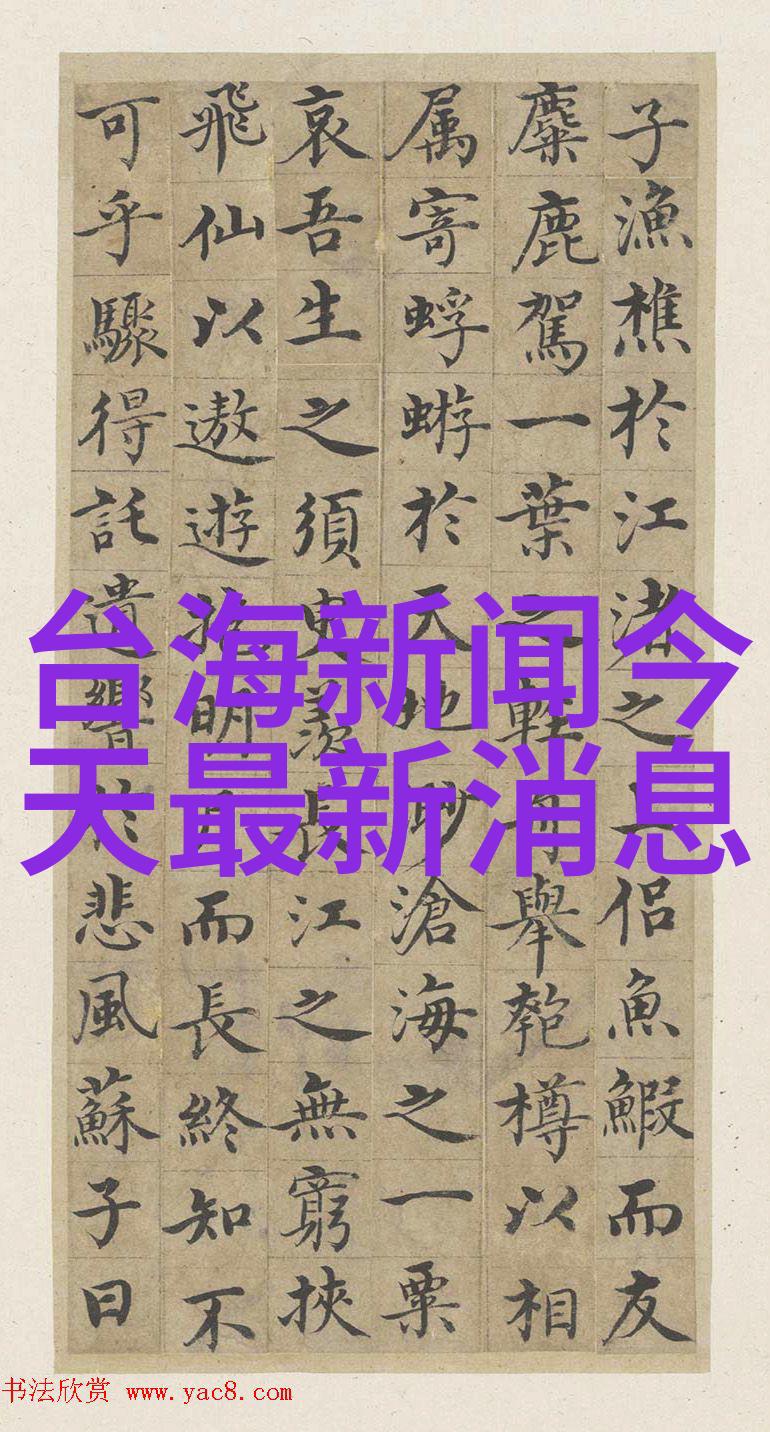 子漁樵於江渚之上侶魚鰕而友
麋鹿駕一葉之輕舟舉匏樽以相
属寄蜉蝣於天地眇滄海之一粟
哀吾生之須臾羨長江之無窮挾
飛仙以遨遊抱明月而長終知不
可乎驟得託遺響於悲風蘇子曰
台海新闻今
天最新消息
书法欣赏 www.yac8.com